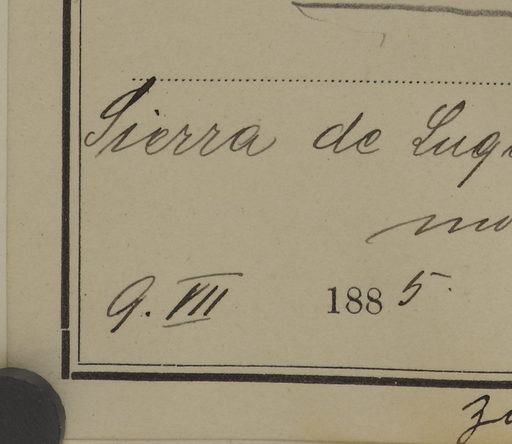 Sierra de Luq
9. VII 1885.